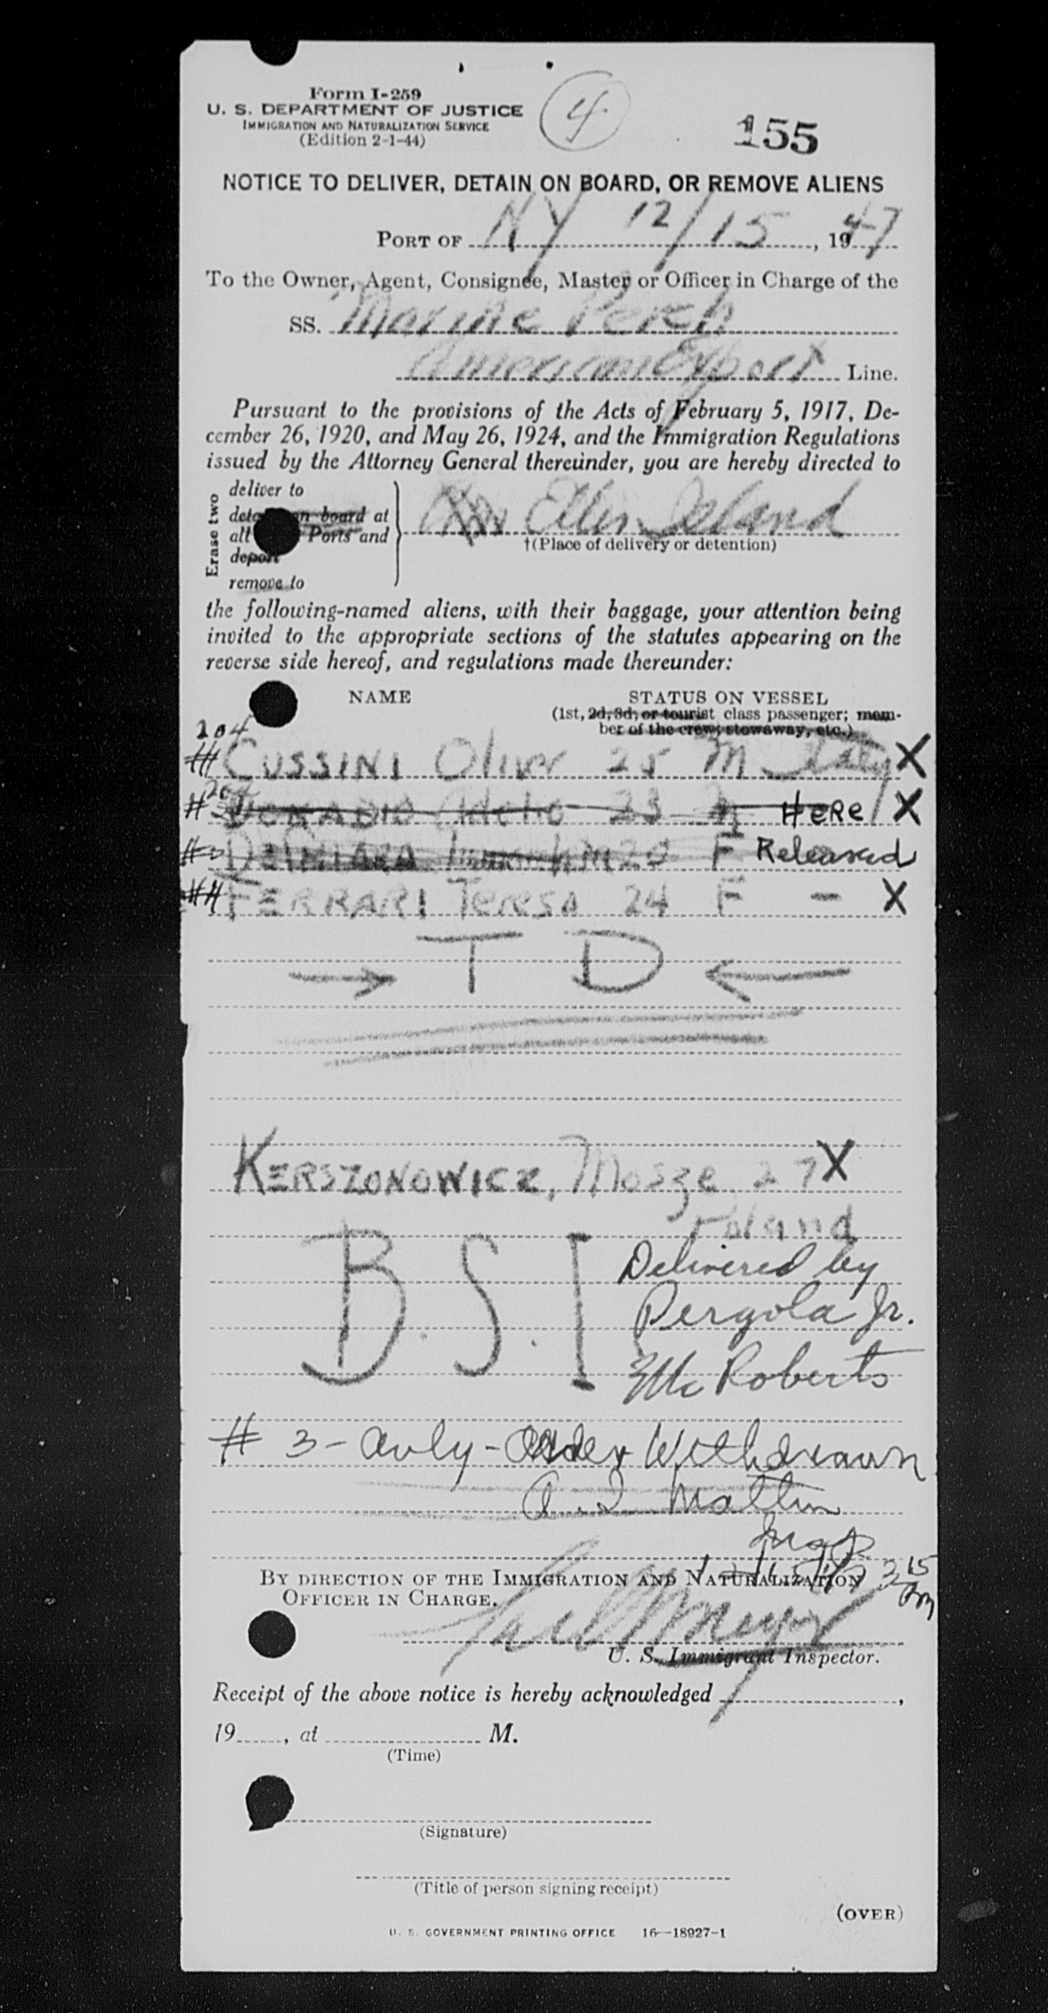 Form I-259
U. S. DEPARTMENT OF JUSTICE
IMMIGRATION AND NATURALIZATION SERVICE
(Edition 2-1-44)
4
155
NOTICE TO DELIVER, DETAIN ON BOARD, OR REMOVE ALIENS
PORT OF NY 12/15, 1947
To the Owner, Agent, Consignee, Master or Officer in Charge of the
SS. Marine Perch
American Export Line.
Pursuant to the provisions of the Acts of February 5, 1917, De-
cember 26, 1920, and May 26, 1924, and the Immigration Regulations
issued by the Attorney General thereunder, you are hereby directed to
Erase two
deliver to
detain on board at
all Ports and
deport
remove to
Ellis Island
†(Place of delivery or detention)
the following-named aliens, with their baggage, your attention being
invited to the appropriate sections of the statutes appearing on the
reverse side hereof, and regulations made thereunder:
NAME STATUS ON VESSEL
(1st, 2d, 3d, or tourist class passenger; mem-
ber of the crew, stowaway, etc.)
204
# CUSSINI 25 M Italy X
# 204 23 M HERE X
F Released
## FERRARI Teresa 24 F - X
→ T D ←
KERSZONOWICZ, Mosze 27 X
Poland
B.S.I
Delivered by
Pergola Jr.
McRoberts
# 3 - only - Order Withdrawn
Insp
BY DIRECTION OF THE IMMIGRATION AND NATURALIZATION
OFFICER IN CHARGE.
U. S. Immigrant Inspector.
Receipt of the above notice is hereby acknowledged ,
19 , at M.
(Time)
(Signature)
(Title of person signing receipt)
(OVER)
U. S. GOVERNMENT PRINTING OFFICE 16—18927-1